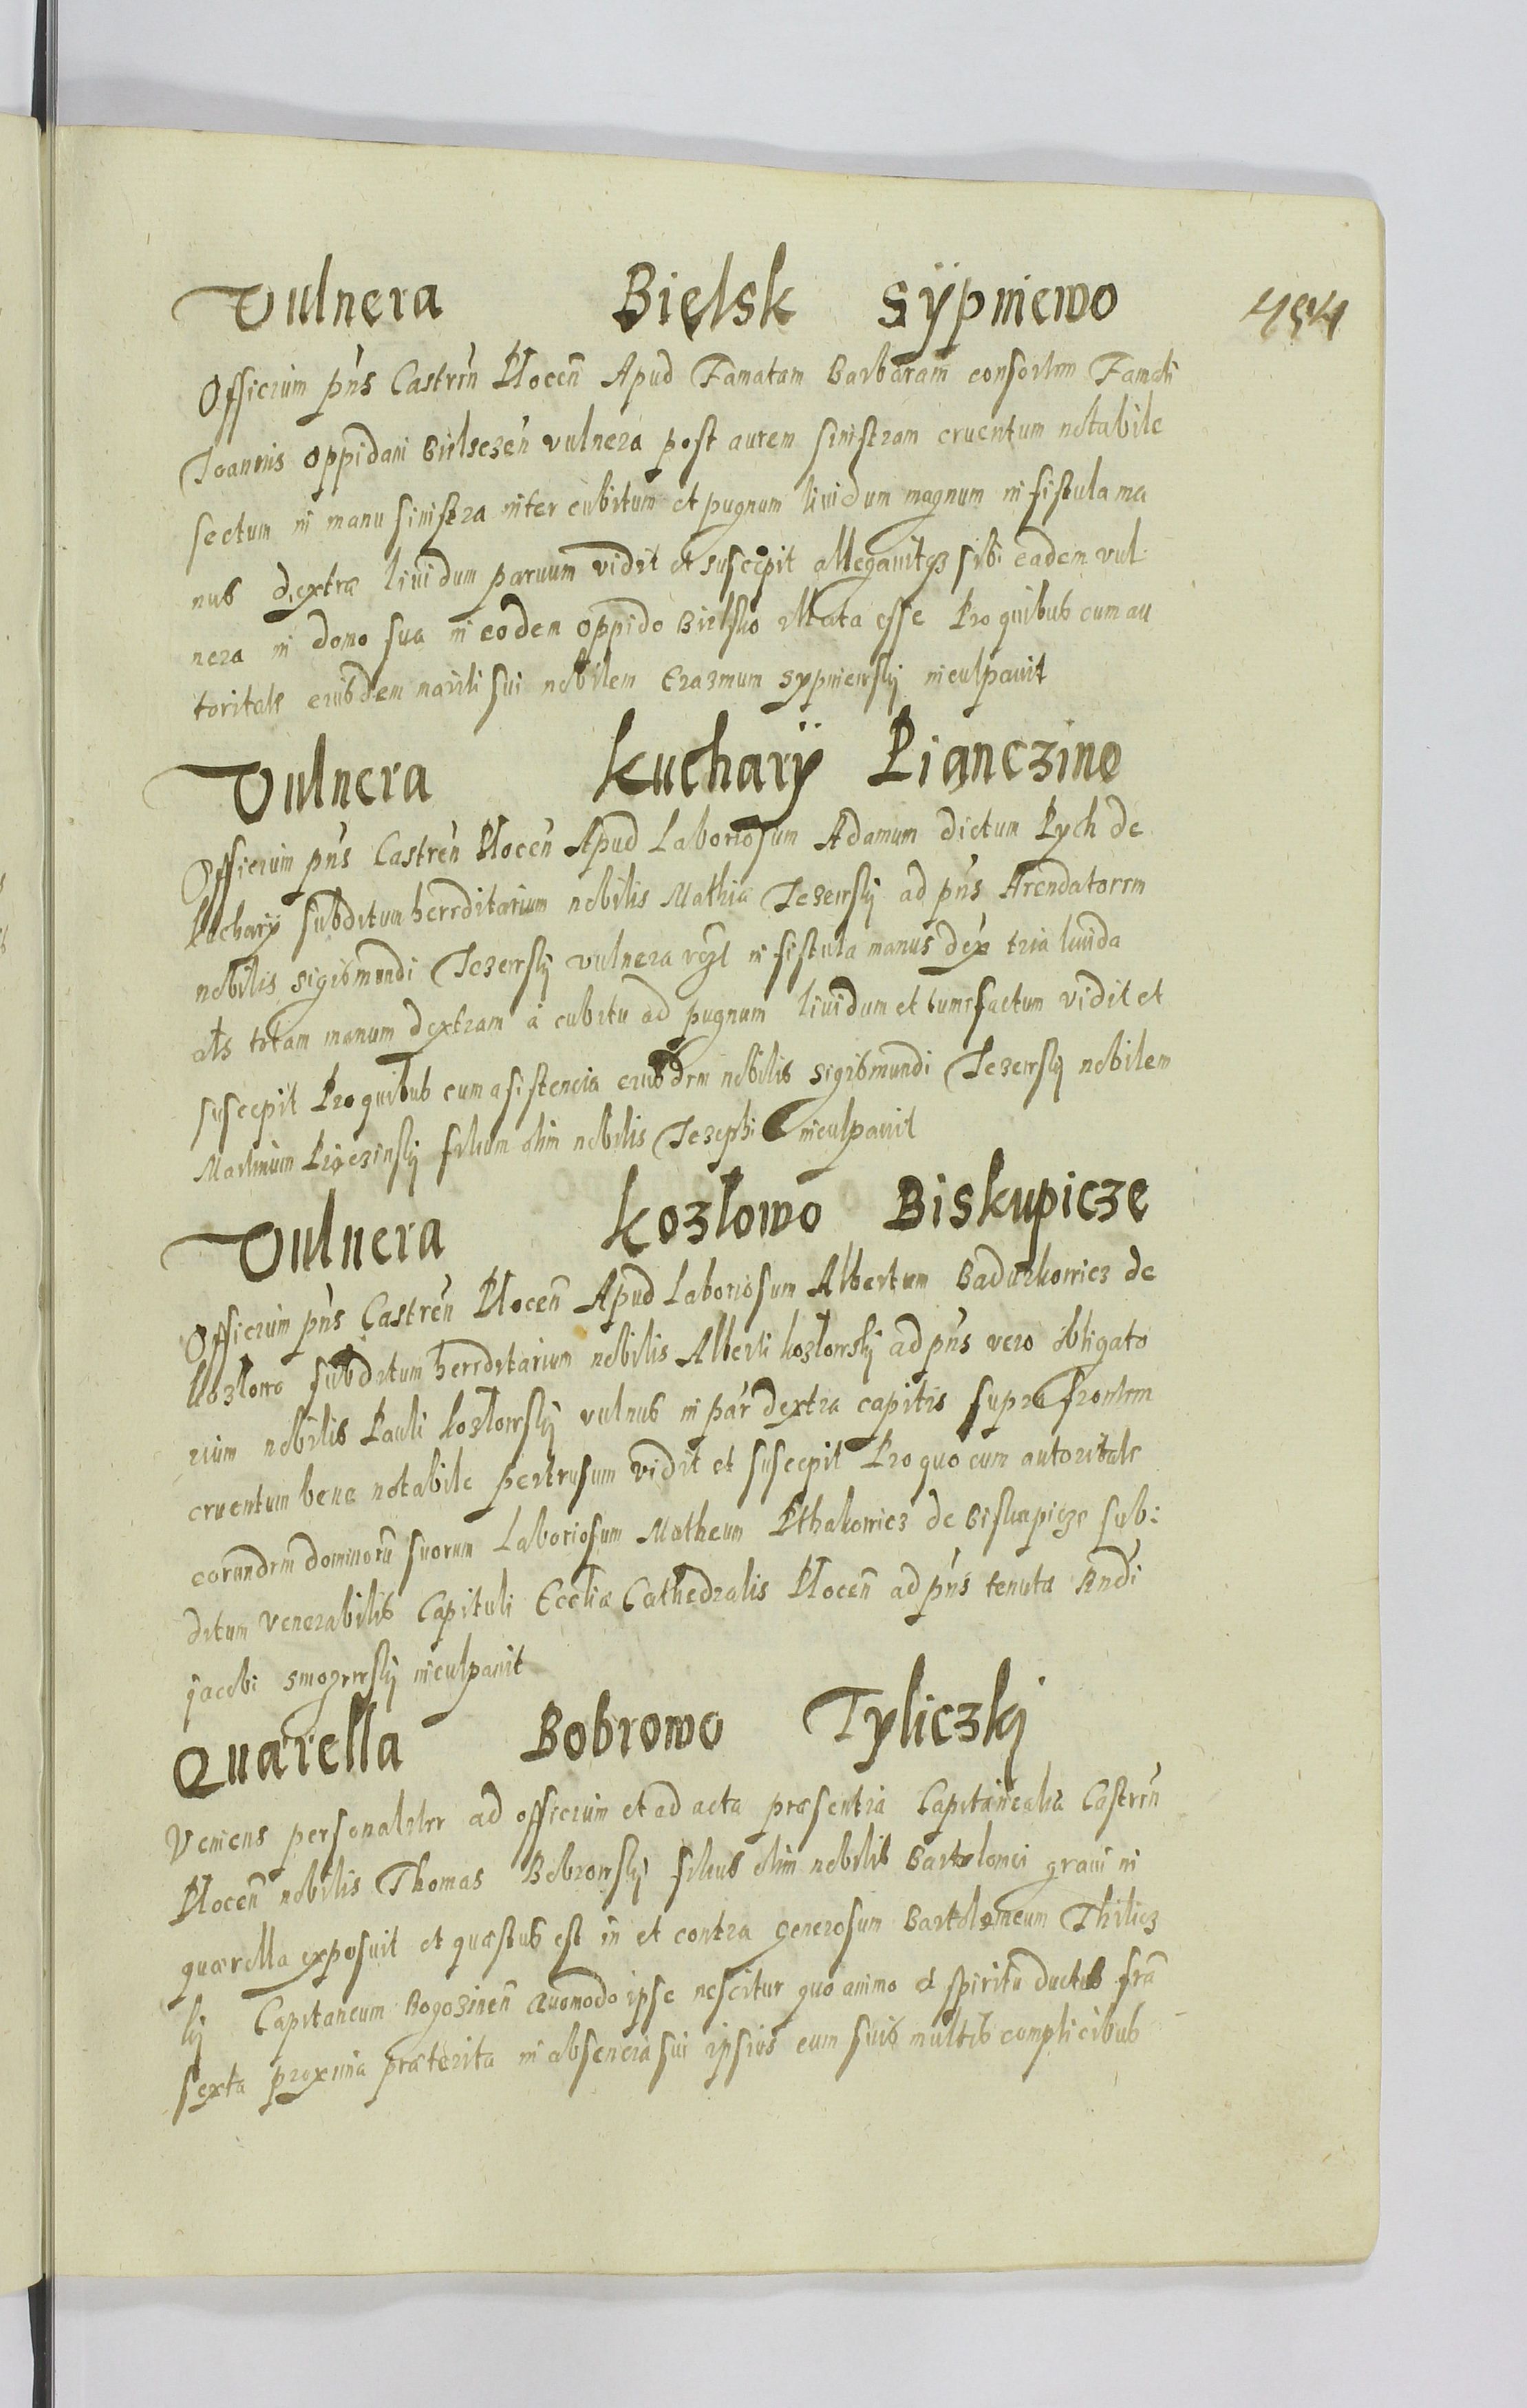 Vulnera Bielsk Sÿpniewo 454
Officium pn̄s Castren̄ Plocen̄ Apud Famatam Barbaram consortem Famati
Joannis oppidani Bielsczen̄ vulnera post aurem sinistram cruentum notabile
sectum in manu sinistra inter cubitum et pugnum liuidum magnum in fistula ma
nus dextræ liuidum paruum vidit et suscepit allegauitqz sibi eadem vul
nera in domo sua in eodem oppido Bielsko illata esse Pro quibus cum au
toritate eiusdem mariti sui nobilem Erazmum Sypniewskij inculpauit
Vulnera Kucharÿ Pianczino
Officium pn̄s Castren̄ Plocen̄ Apud Laboriosum Adamum dictum Pych de
Kucharÿ subditum hereditarium nobilis Mathiæ Jezewskij ad pn̄s Arendatorem
nobilis Sigismundi Jezewskij vulnera in fistula manus dex tria liuida
als totam manum dextram à cubitu ad pugnum liuidum et tumefactum vidit et
suscepit Pro quibus cum asistencia eiusdem nobilis Sigismundi Jezewskij nobilem
Martinum filium olim nobilis Jozephi inculpauit
Vulnera Kozłowo Biskupicze
Officium pn̄s Castren̄ Plocen̄ Apud Laboriosum Albertum Badurkowicz de
Kozłowo subditum hereditarium nobilis Alberti Kozłowskij ad pn̄s vero obligato
rium nobilis Pauli Kozłowskij vulnus in par dextra capitis supra frontem
cruentum bene notabile pertrusum vidit et suscepit Pro quo cum autoritate
eorundem dominorū suorum Laboriosum Matheum Pthakowicz de Biskupicze sub:
ditum venerabilis Capituli Eccliæ Cathedralis Plocen̄ ad pn̄s tenutæ Rndi
Jacobi inculpauit
Quærella Bobrowo Tyliczkj
Veniens personaliter ad officium et ad acta præsentia Capitanealia Castren̄
Plocen̄ nobilis Thomas Bobrowskij filius olim nobilis Bartolomei graui in
quærella exposuit et quæstus est in et contra Generosum Bartolomeum Thilicz
kij Capitaneum Rogozinen̄ Quomodo ipse nescitur quo animo et spiritu ductus fr̄a
sexta proxima præterita in absencia sui ipsius cum suis multis complicibus